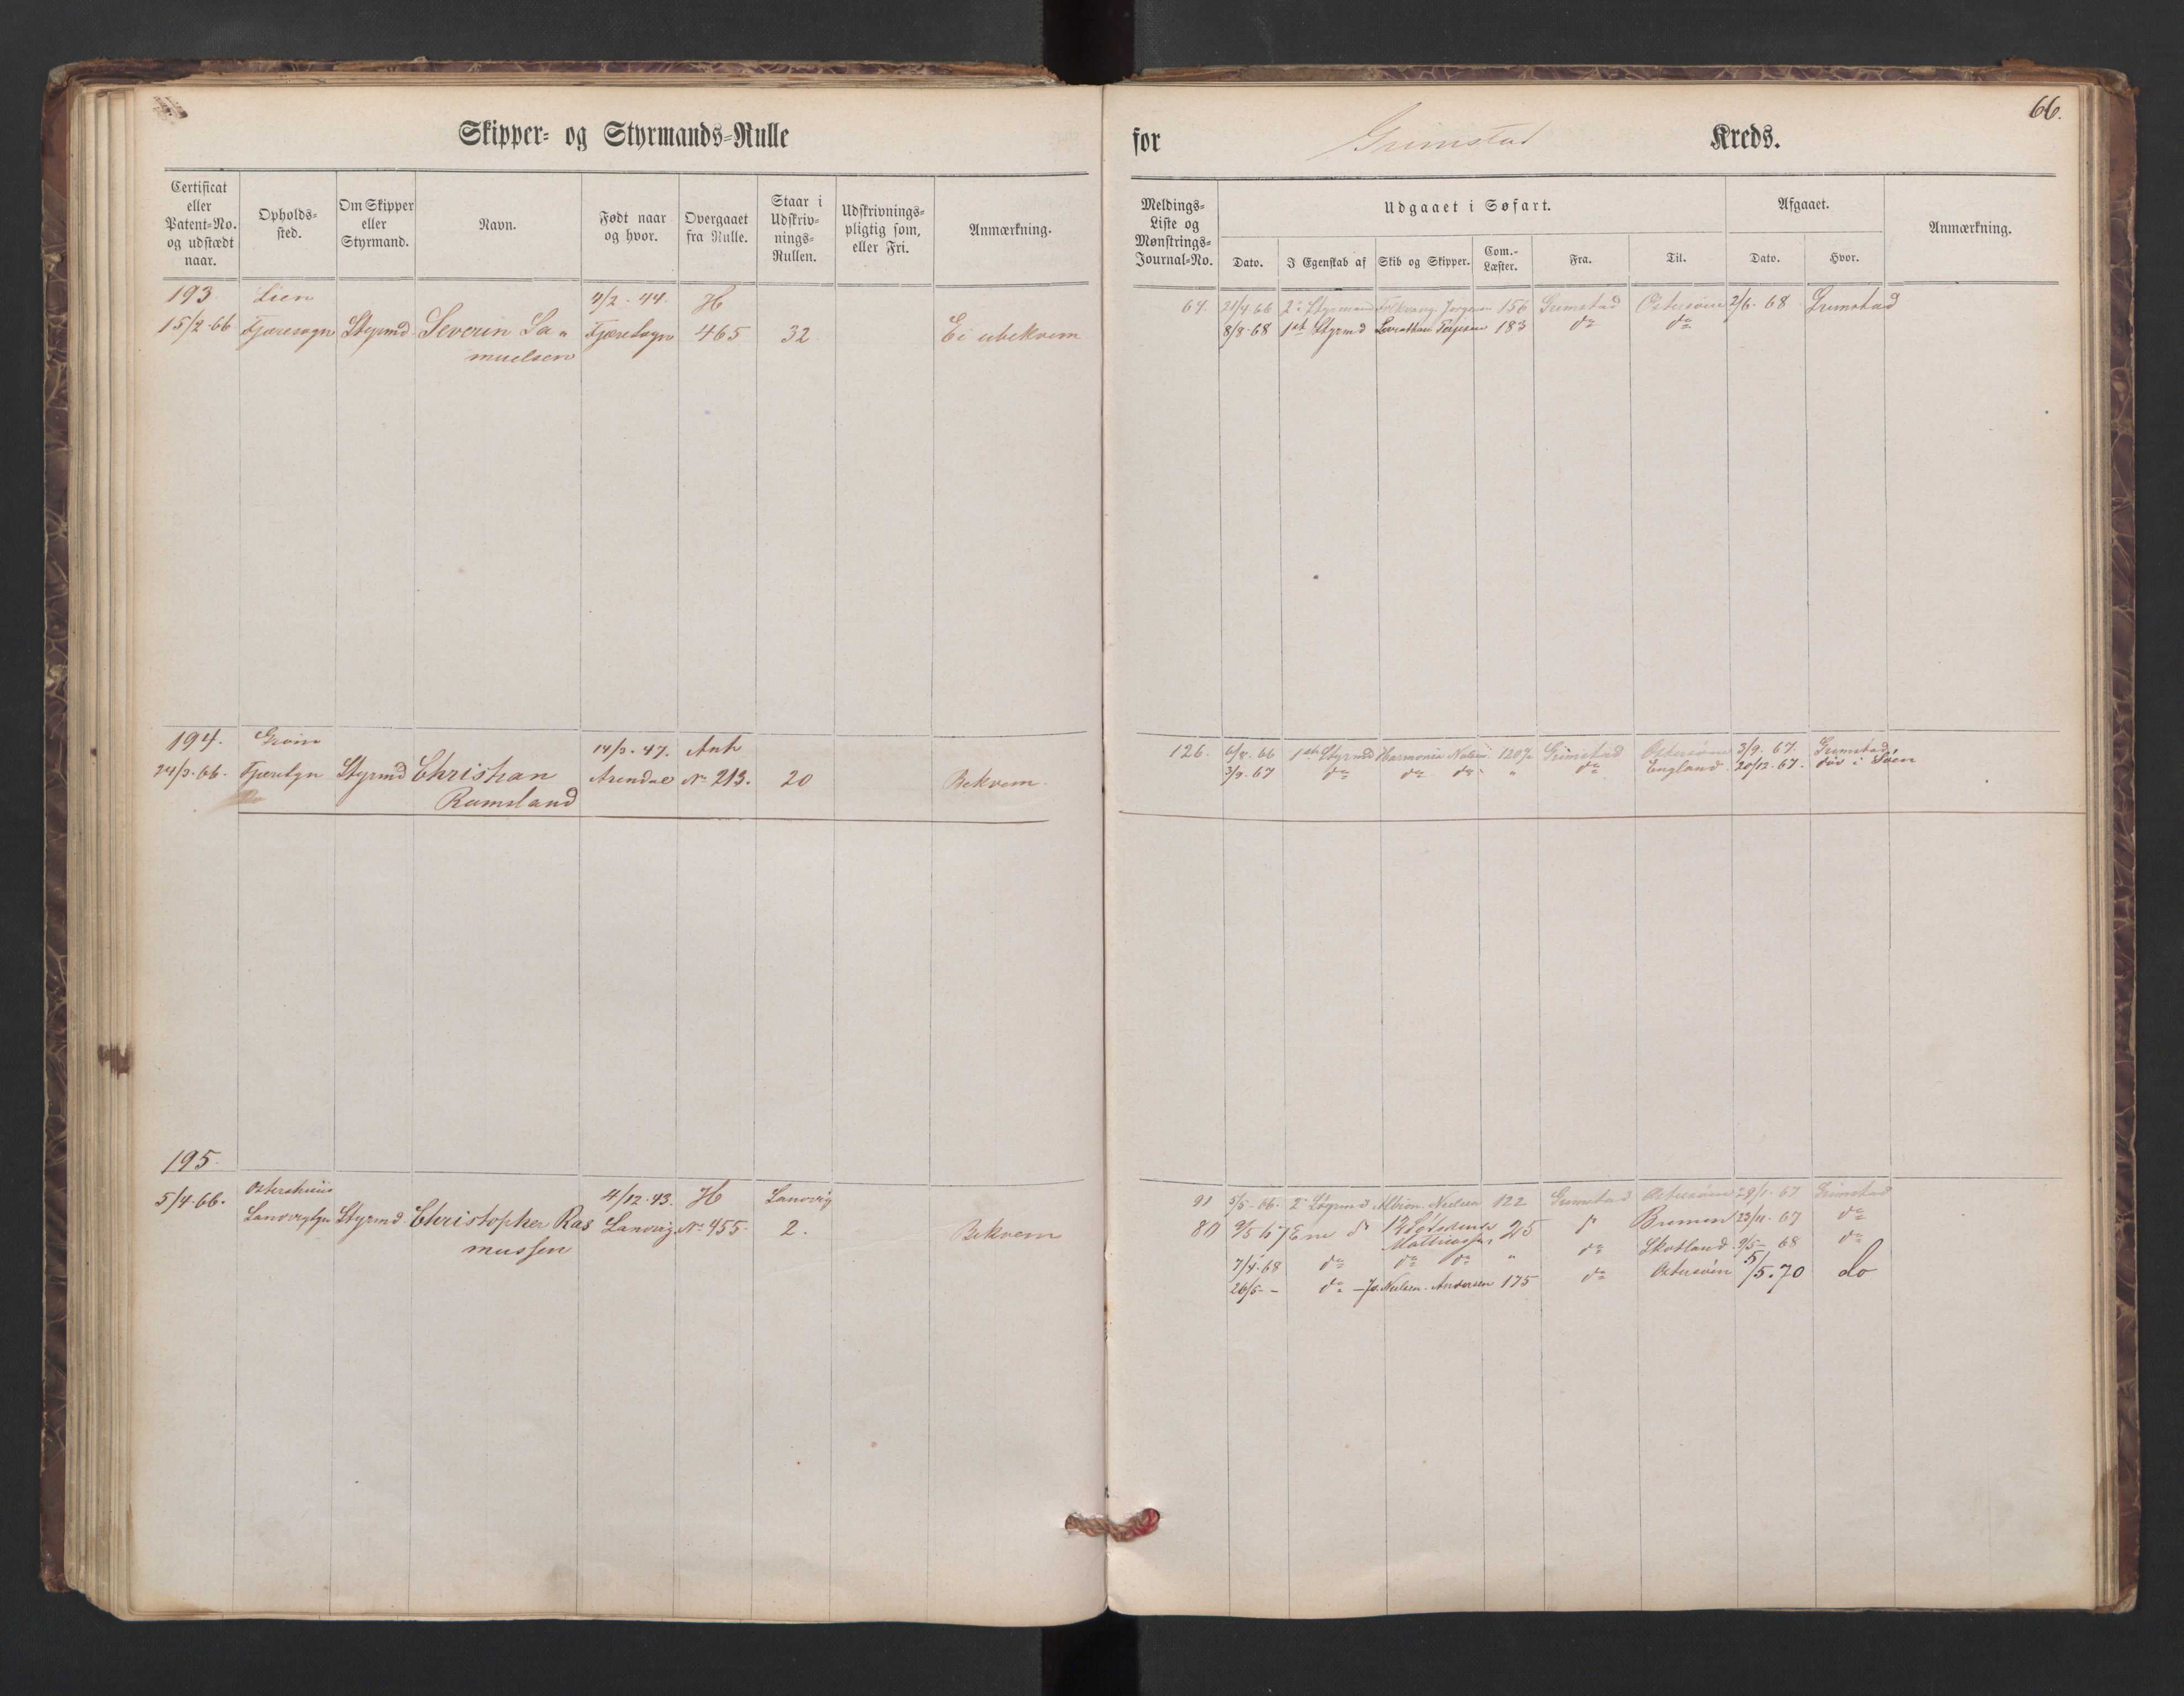 66.
Skipper- og Styrmands-Rulle for Grimstad Kreds.
Certificat eller Patent-No. og udstædt naar.
Opholds-sted.
Om Skipper eller Styrmand.
Navn.
Født naar og hvor.
Overgaaet fra Rulle.
Staar i Udskriv-nings-Rullen.
Udskrivnings-pligtig som, eller Fri.
Anmærkning.
Meldings-Liste og Mønstrings-Journal-No.
Udgaaet i Søfart.
Dato.
I Egenskab af
Skib og Skipper.
Com.-Læster.
Fra.
Til.
Afgaaet.
Dato.
Hvor.
Anmærkning.
193 Lien 4/2 - 44. H
15/2-66 Fjæresogn Styrmd Severin Sa- Fjæresogn 465 32 Ei ubekvem
muelsen
64. 21/4 66 2den Styrmand Jørgensen 156 Grimstad Østersøen 2/6 - 68 Grimstad
8/8-68 1ste Styrmd Leviathan Terjesen 183 do do
194. Grøm 14/3. 47. Anh
24/3-66. Fjæresgn Styrmd Christian Arendal No 213. 20 Bekvem.
Ramsland
126. 6/8. 66 1ste Styrmd Harmonia Nielsen 120½ Grimstad Østersøen 3/9. 67. Grimstad
3/9. 67 do do do " do England 20/12. 67. død i Søen
195.
5/4-66. Østerhuus 4/12-43. H Landvig
Landvigsgn Styrmd. Christopher Ras Landvig. No 455. 2. Bekvem
mussen
91 5/5-66. 2den Styrmd Albion. Nielsen 122 Grimstad Østersøen 29/1-67 Grimstad
80 9/5 67 Ene do Mathiassen 25 Bremen 23/11. 67 do
7/4-68 do do do " do Skotland 9/5- 68 do
26/5- - do Jo. Nielsen. Andersen 175 do Østersøen 5/5.70 do